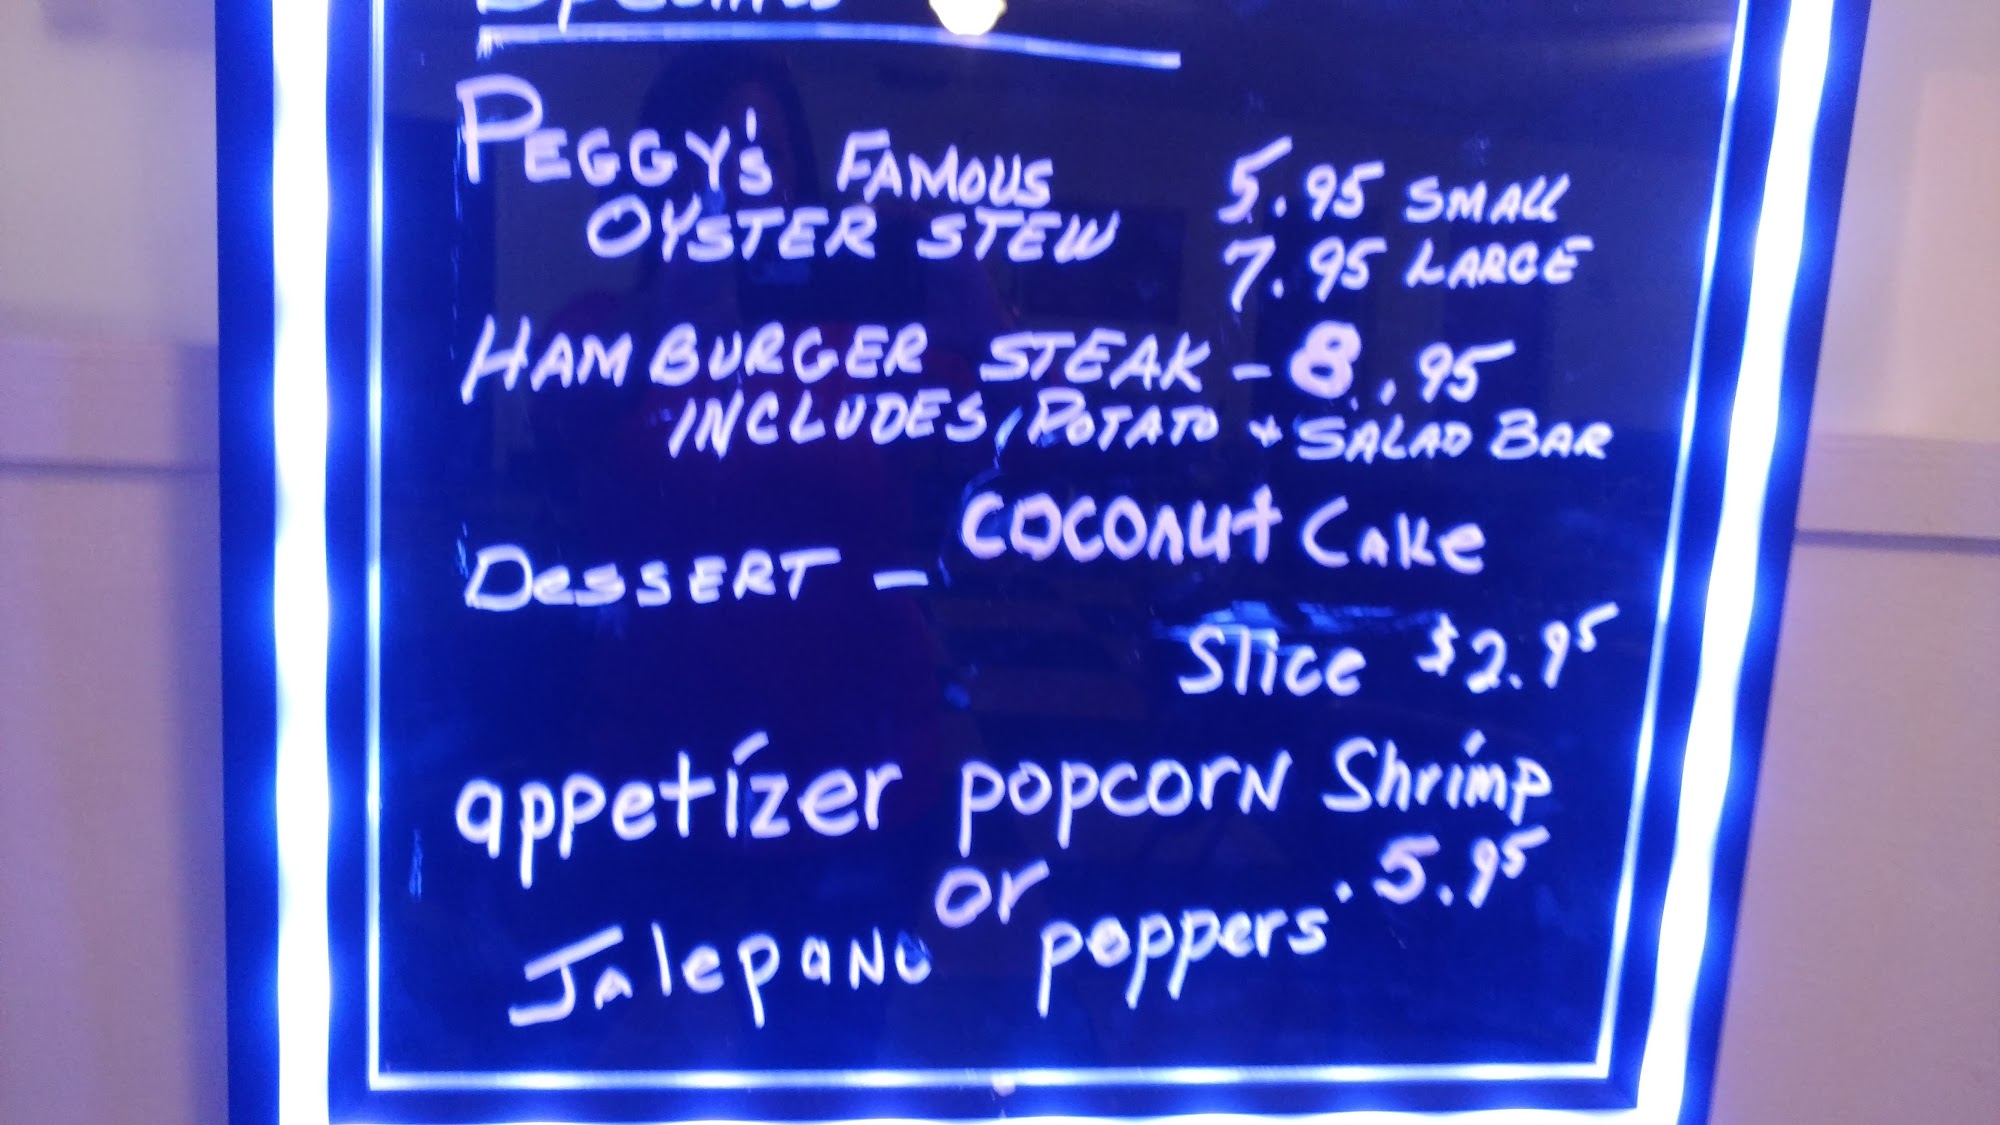 Specials
PEGGY's FAMOUS 5.95 SMALL
OYSTER STEW 7.95 LARGE
HAMBURGER STEAK - 8.95
INCLUDES, POTATO + SALAD BAR
DESSERT - COCONUT CAKE
Slice $2.95
appetizer popcorn Shrimp
or . 5.95
Jalepano poppers